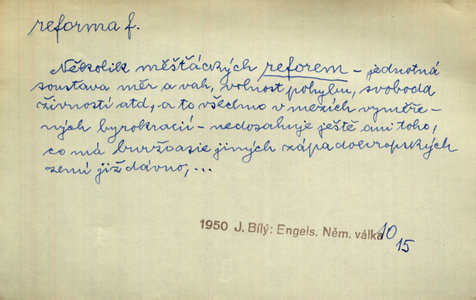 reforma f.
Několik měšťáckých reforem – jednotná
soustava měr a vah, volnost pohybu, svoboda
živností atd, a to všechno v mezích vyměře-
ných byrokracií – nedosahuje ještě ani toho,
co má buržoasie jiných západoevropských
zemí již dávno, ...
1950 J. Bílý: Engels. Něm. válka 10
15